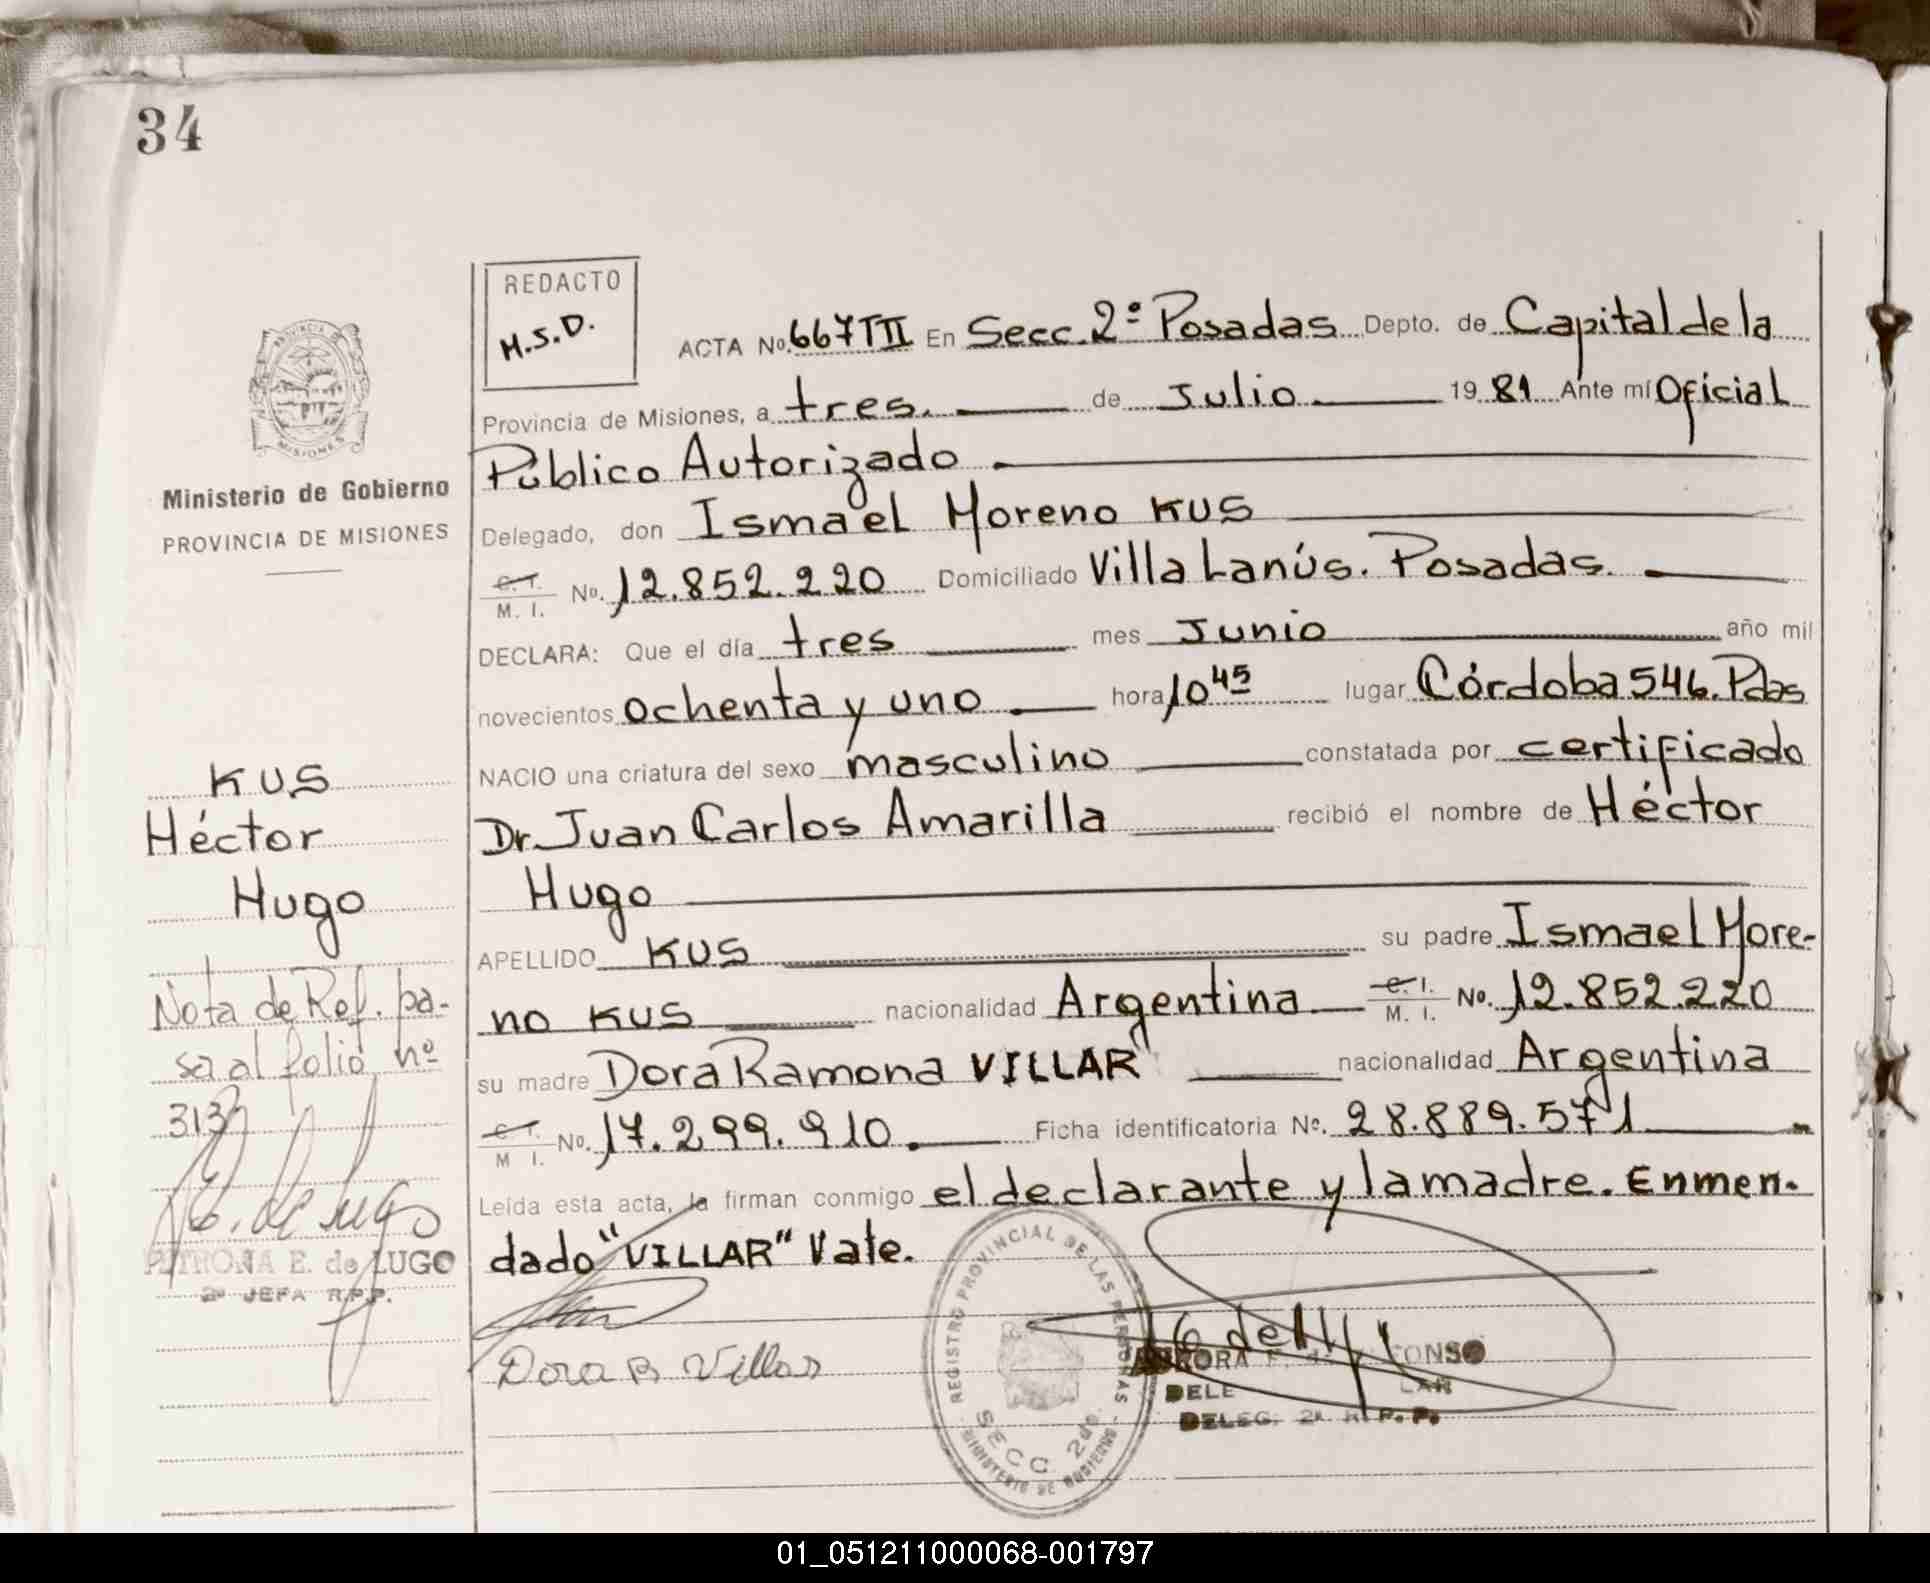 34
REDACTO
H.S.D.
ACTA No. 667 TII En Secc. 2º Posadas Depto. de Capital de la
Provincia de Misiones, a tres. de Julio 19 81 Ante mí Oficial
Público Autorizado
Delegado, don Ismael Moreno KUS
C. I.
M. I. No. 12.852.220 Domiciliado Villa Lanús. Posadas.
DECLARA: Que el día tres mes Junio año mil
novecientos ochenta y uno hora 10 45 lugar Córdoba 546. Pdas
NACIO una criatura del sexo masculino constatada por certificado
Dr. Juan Carlos Amarilla recibió el nombre de Héctor
Hugo
APELLIDO KUS su padre Ismael More-
no KUS nacionalidad Argentina C. I. M. I. No. 12.852.220
su madre Dora Ramona VILLAR" nacionalidad Argentina
C. I.
M I. No. 17.299.910. Ficha identificatoria No. 28.889.571
Leída esta acta, la firman conmigo el declarante y la madre. Enmen-
dado "VILLAR" Vale.
Dora R Villar
REGISTRO PROVINCIAL DE LAS PERSONAS
SECC 2da.
MINISTERIO DE GOBIERNO
DELEG. 2a. R. P. P.
PROVINCIA
MISIONES
Ministerio de Gobierno
PROVINCIA DE MISIONES
KUS
Héctor
Hugo
Nota de Ref. pa-
sa al folio nº
313
E. de Lugo
PETRONA E. de LUGO
2a JEFA R.P.P.
01_051211000068-001797